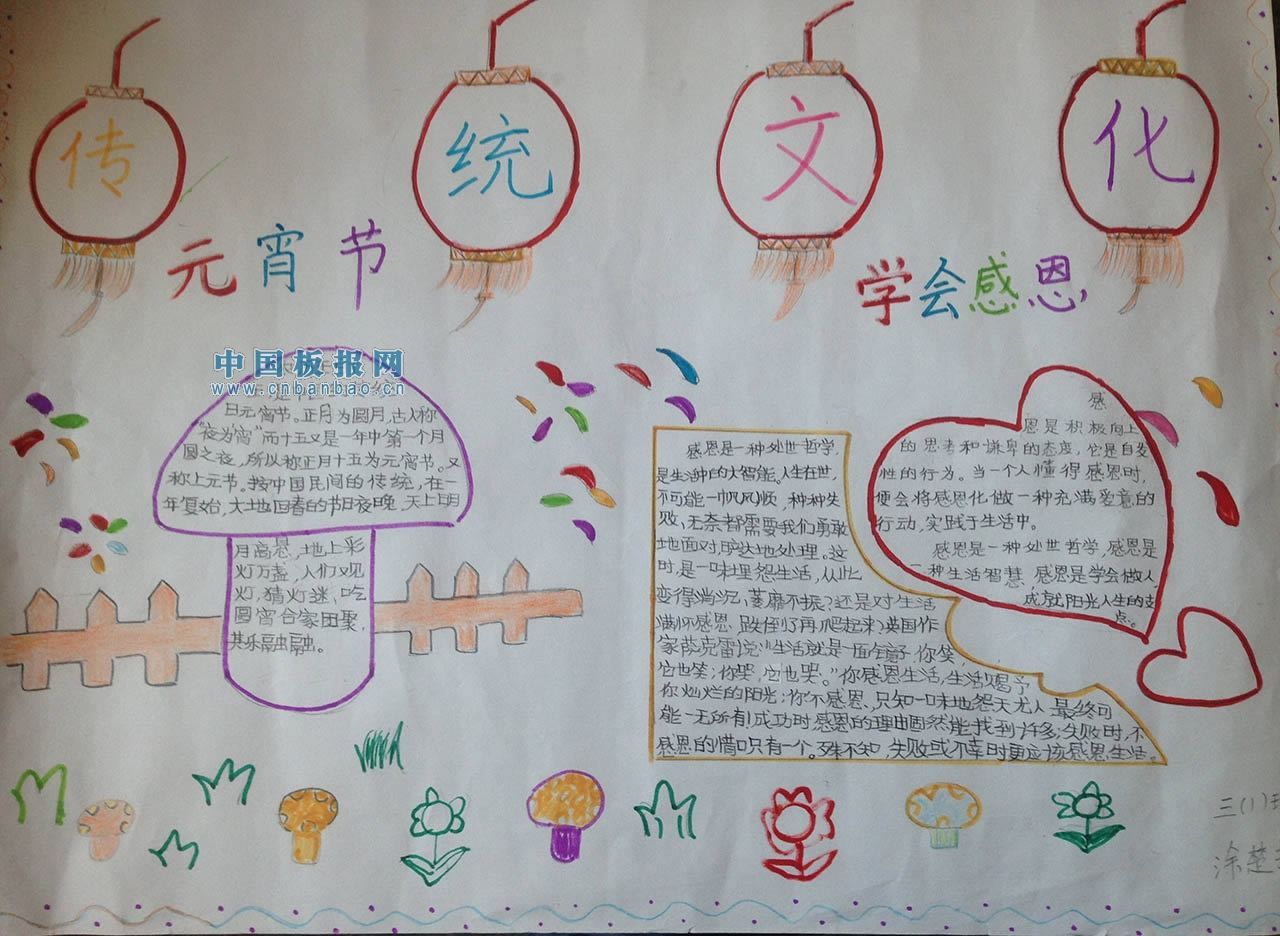 传 统 文 化
元宵节
学会感恩
中国板报网
www.cnbanbao.cn
日元宵节。正月为圆月,古人称
"夜为宵"而十五又是一年中第一个月
圆之夜,所以称正月十五为元宵节。又
称上元节。按中国民间的传统,在一
年复始,大地回春的节日夜晚,天上明
月高悬,地上彩
灯万盏,人们观
灯,猜灯迷,吃
圆宵合家团聚,
其乐融融。
感恩是一种处世哲学,
是生活中的大智能。人生在世,
不可能一帆风顺,种种失
败、无奈都需要我们勇敢
地面对旷达地处理。这
时,是一味埋怨生活,从此
变得消沉,萎靡不振?还是对生活
满怀感恩,跌倒了再爬起来?英国作
家萨克雷说:"生活就是一面镜子,你笑,
它也笑;你哭,它也哭。"你感恩生活,生活赐予
你灿烂的阳光;你不感恩、只知一味地怨天尤人,最终可
能一无所有!成功时,感恩的理由固然能找到许多;失败时,不
感恩的借口只有一个。殊不知,失败或不幸时更应该感恩生活。
感
恩是积极向上
的思考和谦卑的态度,它是自发
性的行为。当一个人懂得感恩时,
便会将感恩化做一种充满爱意的
行动,实践于生活中。
感恩是一种处世哲学,感恩是
一种生活智慧,感恩是学会做人,
成就阳光人生的支
点。
三(1)
涂楚